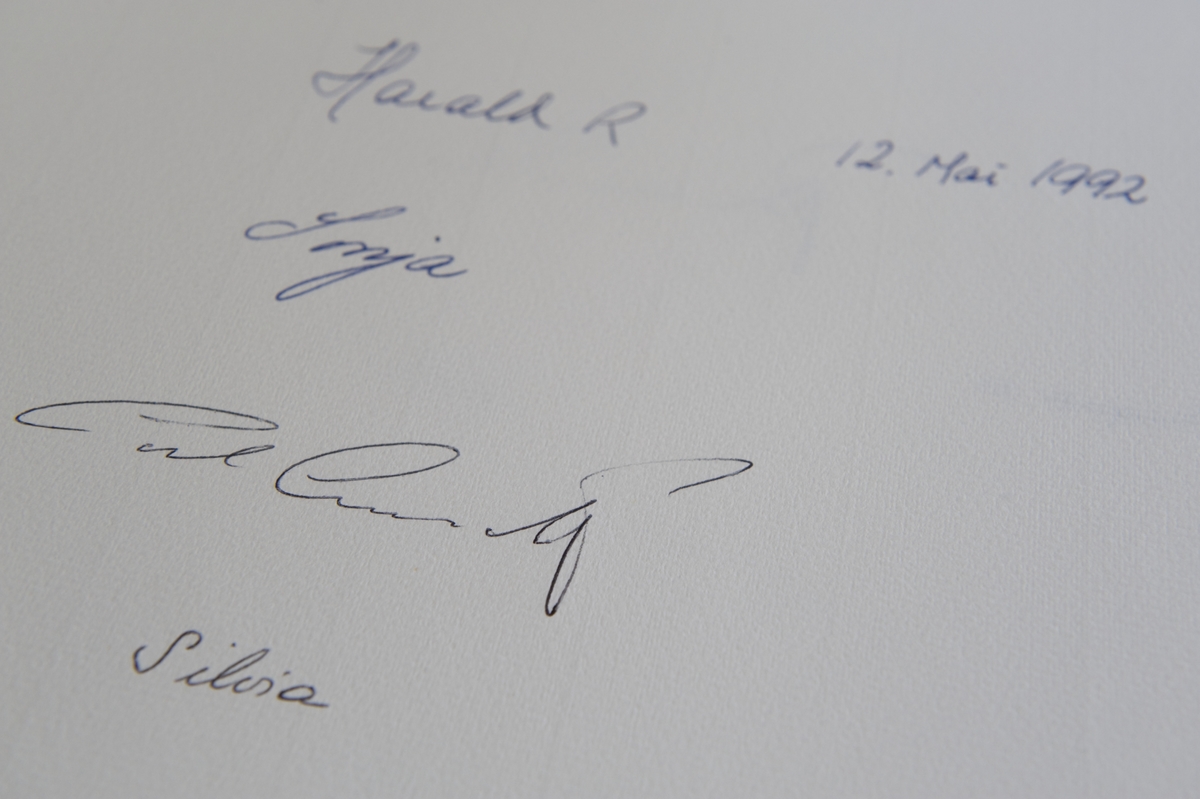 Harald R
12. Mai 1992
Sonja
Carl Gustaf
Silvia